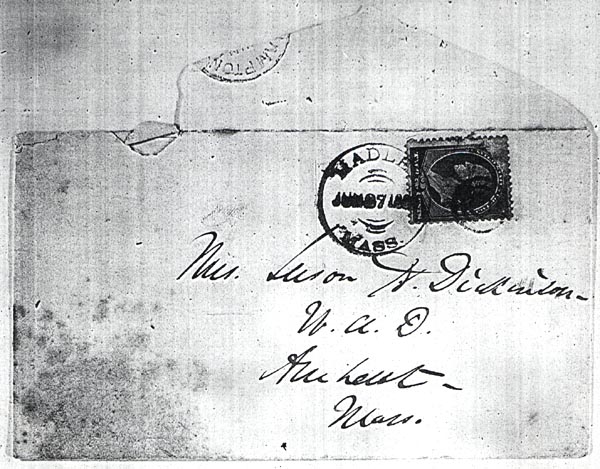 MPTON
HADLE
JUN 27 188
MASS.
Mrs. Susan H. Dickinson—
W. A. D.
Amherst—
Mass.